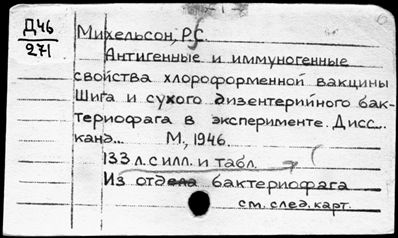 Д46
271
Михельсон, Р.С.
Антигенные и иммуногенные
свойства хлороформенной вакцины
Шига и сухого дизентерийного бак-
териофага в эксперименте. Дисс...
канд... М., 1946.
133 л. с илл. и табл.
Из отдела бактериофага
см. след. карт.